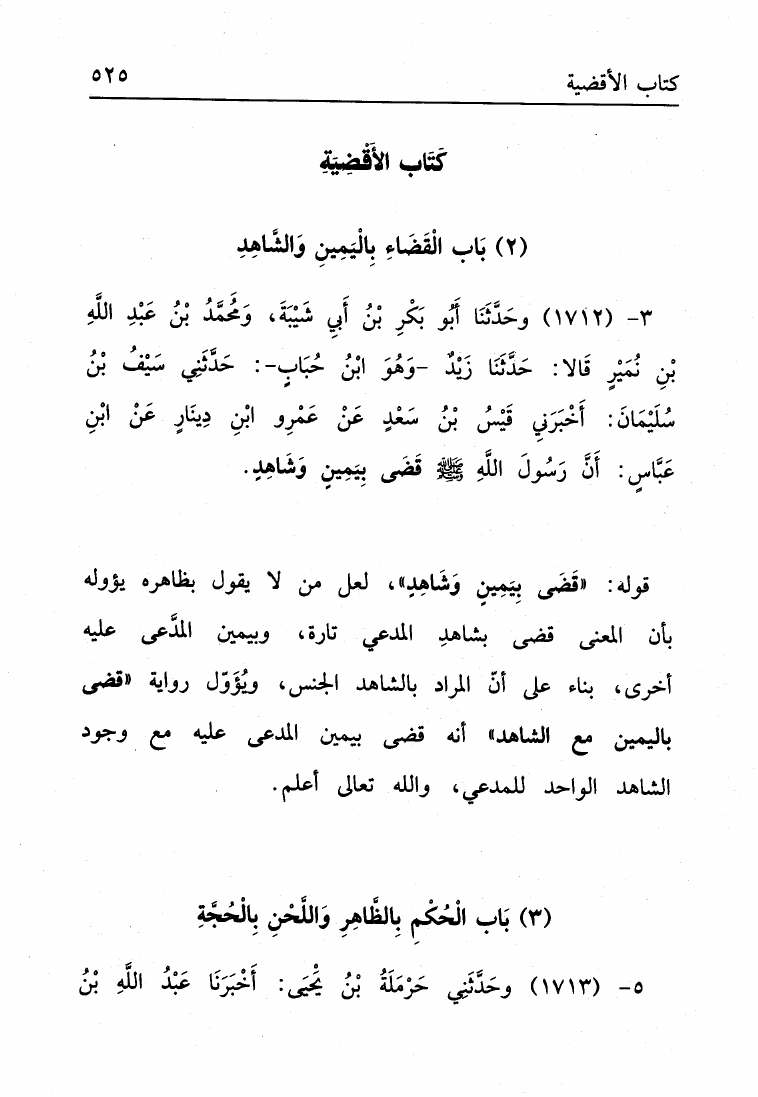 كتاب الأقضية ٥٢٥
كَتَّاب الأَقْضِيَةِ
(٢) بَاب الْقَضَاءِ بِالْيَمِينِ وَالشَّاهِدِ
٣- (١٧١٢) وحَدَّثَنَا أَبُو بَكْرِ بْنُ أَبِي شَيْبَةَ، وَمُحَمَّدُ بْنُ عَبْدِ اللَّهِ
بْنِ نُمَيْرٍ قَالا: حَدَّثَنَا زَيْدٌ -وَهُوَ ابْنُ حُبَابٍ-: حَدَّثَنِي سَيْفُ بْنُ
سُلَيْمَانَ: أَخْبَرَنِي قَيْسُ بْنُ سَعْدٍ عَنْ عَمْرِو ابْنِ دِينَارٍ عَنْ ابْنِ
عَبَّاسٍ: أَنَّ رَسُولَ اللَّهِ ﷺ قَضَى بِيَمِينٍ وَشَاهِدٍ.
قوله: «قَضَى بِيَمِينٍ وَشَاهِدٍ»، لعل من لا يقول بظاهره يؤوله
بأن المعنى قضى بشاهدِ المدعي تارة، وبيمين المدَّعى عليه
أخرى، بناء على أنّ المراد بالشاهد الجنس، ويُؤَوّل رواية «قضى
باليمين مع الشاهد» أنه قضى بيمين المدعى عليه مع وجود
الشاهد الواحد للمدعي، والله تعالى أعلم.
(٣) بَاب الْحُكْمِ بِالظَّاهِرِ وَاللَّحْنِ بِالْحُجَّةِ
٥- (١٧١٣) وحَدَّثَنِي حَرْمَلَةُ بْنُ يَحْيَى: أَخْبَرَنَا عَبْدُ اللَّهِ بْنُ